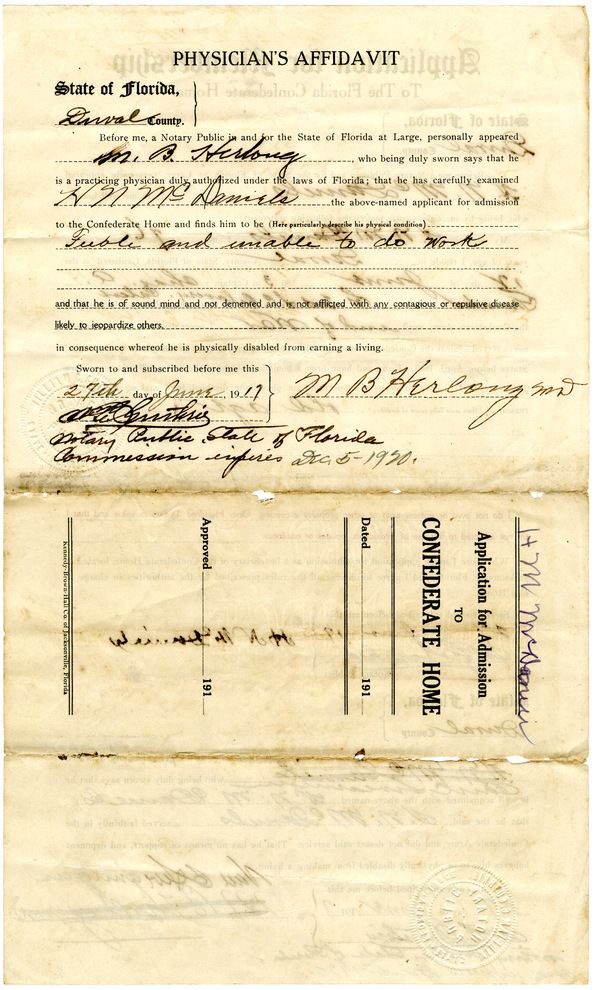 PHYSICIAN'S AFFIDAVIT
State of Florida,
Duval County.
Before me, a Notary Public in and for the State of Florida at Large, personally appeared
M. B. Herlong, who being duly sworn says that he
is a practicing physician duly authorized under the laws of Florida; that he has carefully examined
H N McDaniels the above-named applicant for admission
to the Confederate Home and finds him to be (Here particularly describe his physical condition)
Feeble and unable to do work
and that he is of sound mind and not demented and is not afflicted with any contagious or repulsive disease
likely to jeopardize others.
in consequence whereof he is physically disabled from earning a living.
Sworn to and subscribed before me this
27th day of June 1917
M B Herlong MD
Guthrie
Notary Public State of Florida
Commission expires Dec 5-1920.
H N McDaniel
Application for Admission
TO
CONFEDERATE HOME
Dated 191
Approved 191
Kennedy-Brown-Hall Co. of Jacksonville, Florida